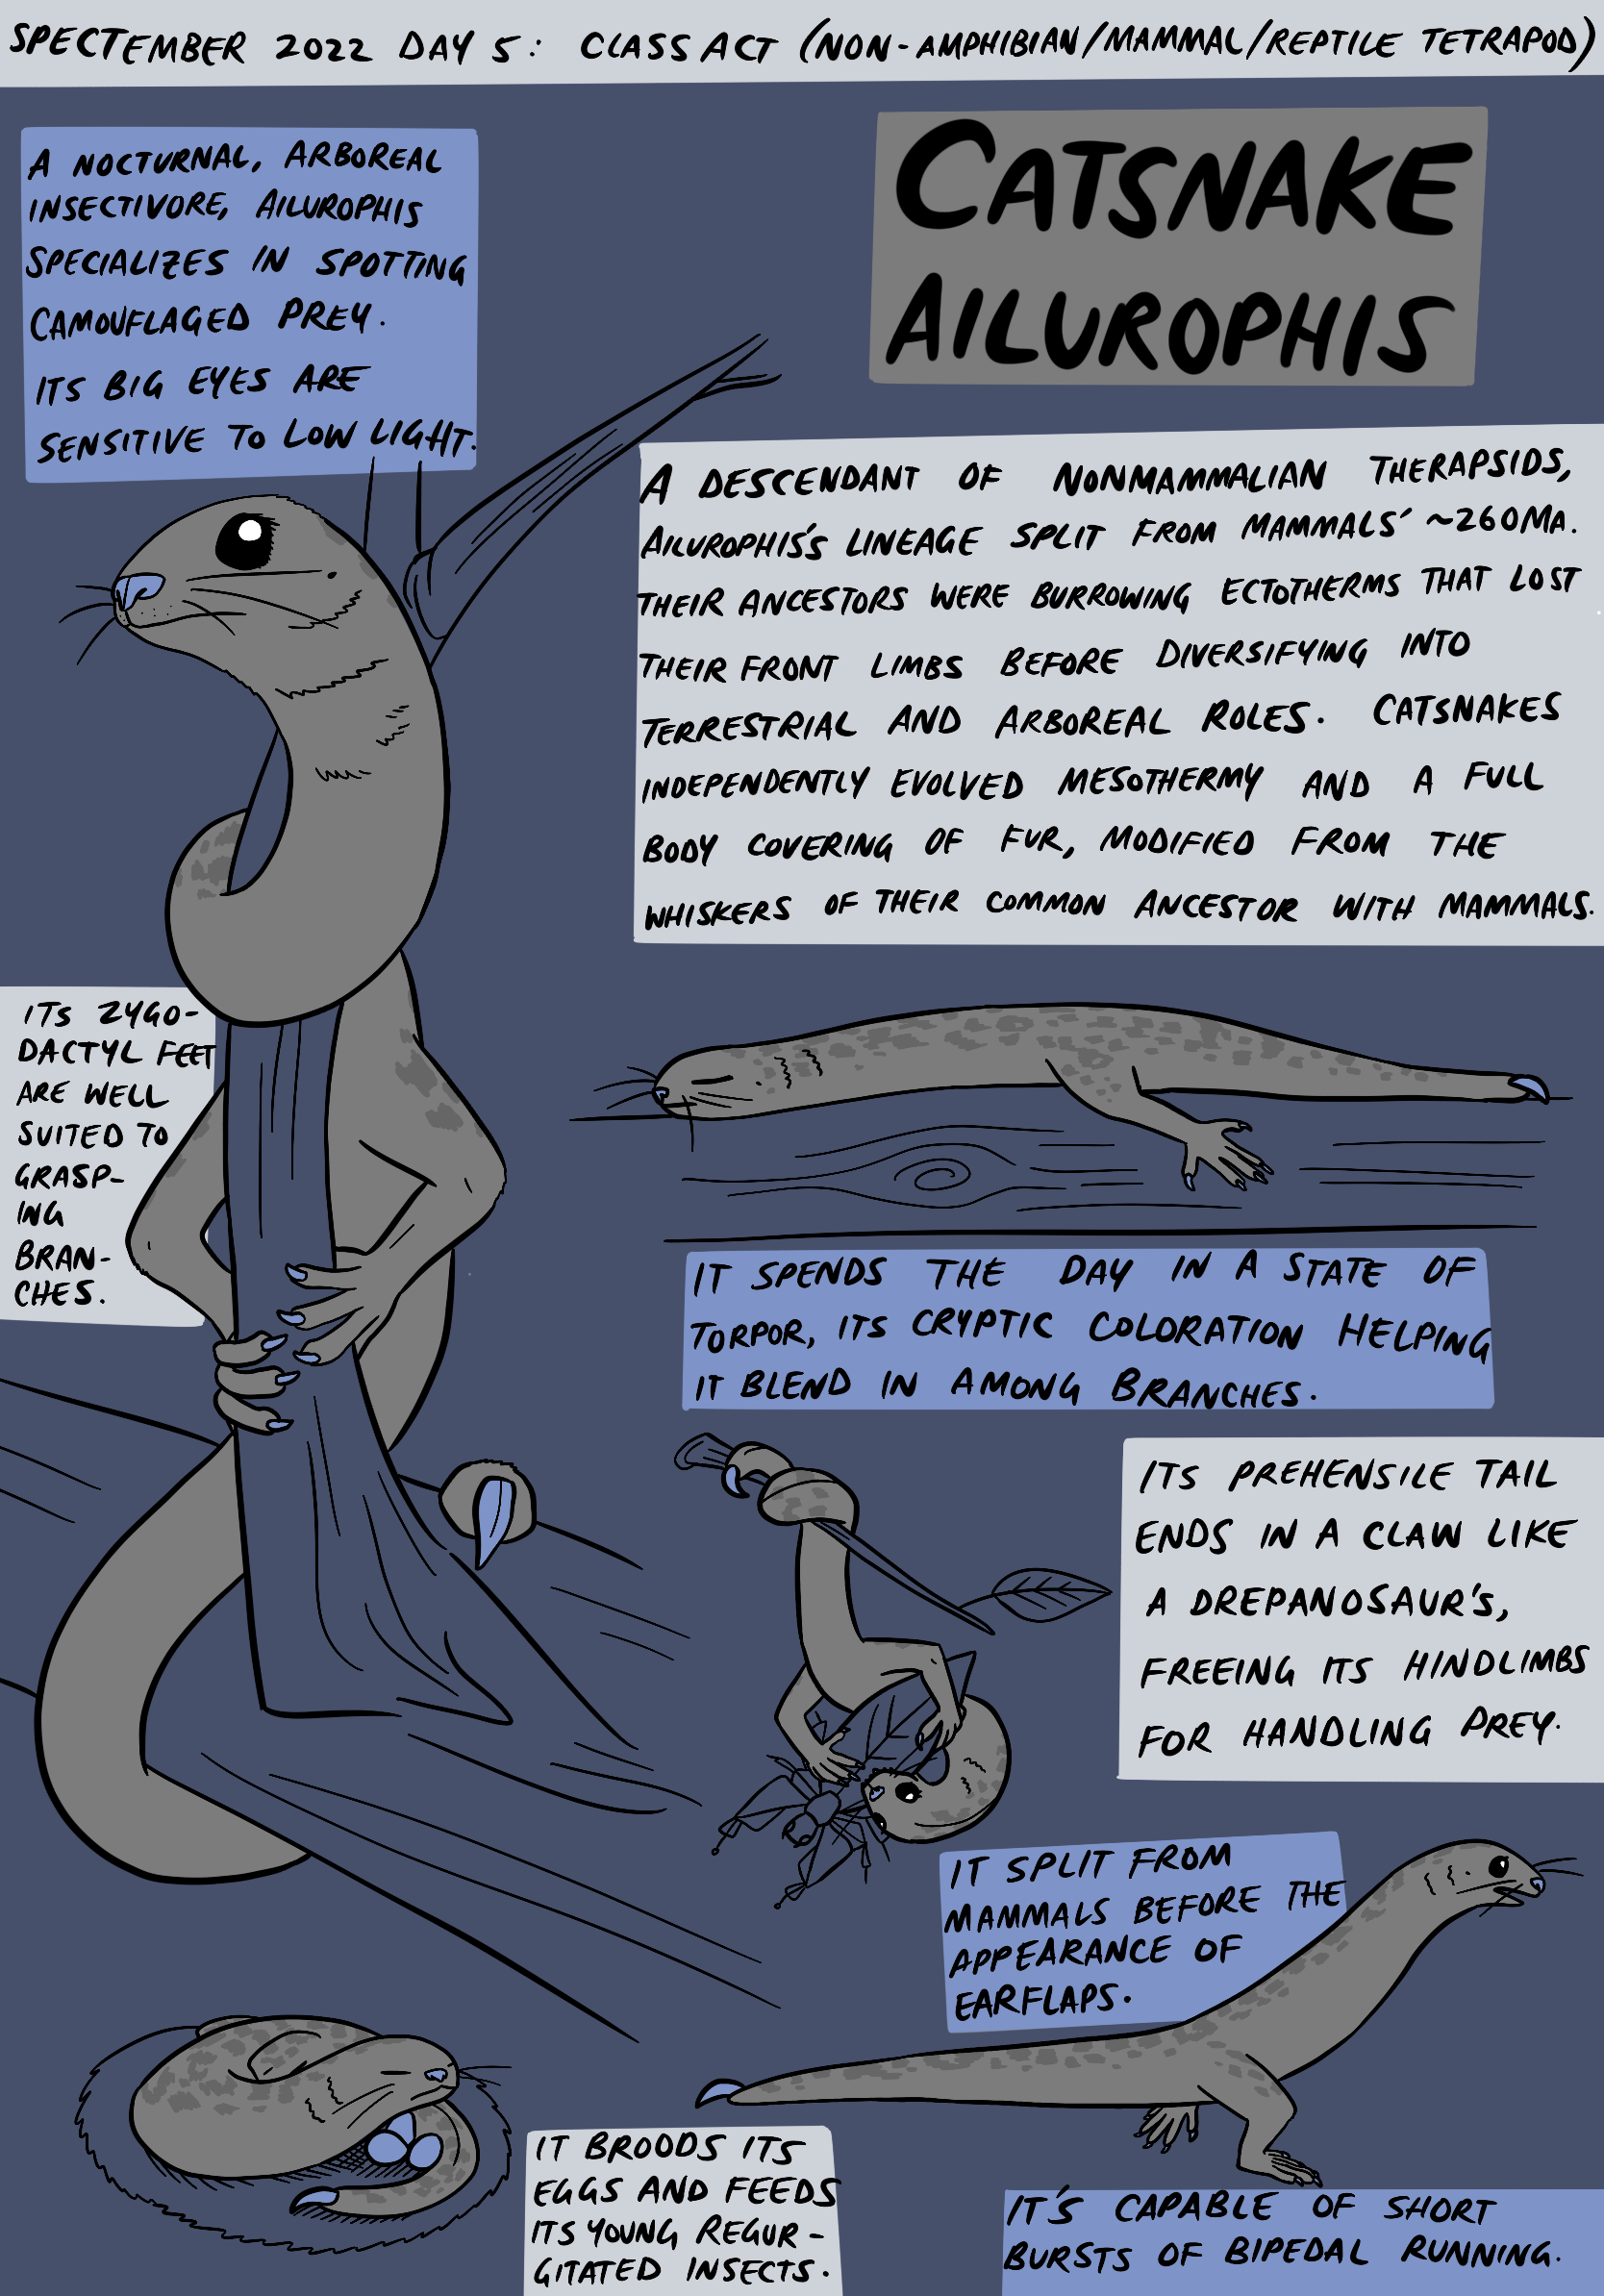 SPECTEMBER 2022 DAY 5: CLASS ACT (NON-AMPHIBIAN/MAMMAL/REPTILE TETRAPOD)
CATSNAKE
AILUROPHIS
A NOCTURNAL, ARBOREAL
INSECTIVORE, AILUROPHIS
SPECIALIZES IN SPOTTING
CAMOUFLAGED PREY.
ITS BIG EYES ARE
SENSITIVE TO LOW LIGHT.
A DESCENDANT OF NONMAMMALIAN THERAPSIDS,
AILUROPHIS'S LINEAGE SPLIT FROM MAMMALS' ~260MA.
THEIR ANCESTORS WERE BURROWING ECTOTHERMS THAT LOST
THEIR FRONT LIMBS BEFORE DIVERSIFYING INTO
TERRESTRIAL AND ARBOREAL ROLES. CATSNAKES
INDEPENDENTLY EVOLVED MESOTHERMY AND A FULL
BODY COVERING OF FUR, MODIFIED FROM THE
WHISKERS OF THEIR COMMON ANCESTOR WITH MAMMALS.
ITS ZYGO-
DACTYL FEET
ARE WELL
SUITED TO
GRASP-
ING
BRAN-
CHES.
IT SPENDS THE DAY IN A STATE OF
TORPOR, ITS CRYPTIC COLORATION HELPING
IT BLEND IN AMONG BRANCHES.
ITS PREHENSILE TAIL
ENDS IN A CLAW LIKE
A DREPANOSAUR'S,
FREEING ITS HINDLIMBS
FOR HANDLING PREY.
IT SPLIT FROM
MAMMALS BEFORE THE
APPEARANCE OF
EARFLAPS.
IT BROODS ITS
EGGS AND FEEDS
ITS YOUNG REGUR-
GITATED INSECTS.
IT'S CAPABLE OF SHORT
BURSTS OF BIPEDAL RUNNING.